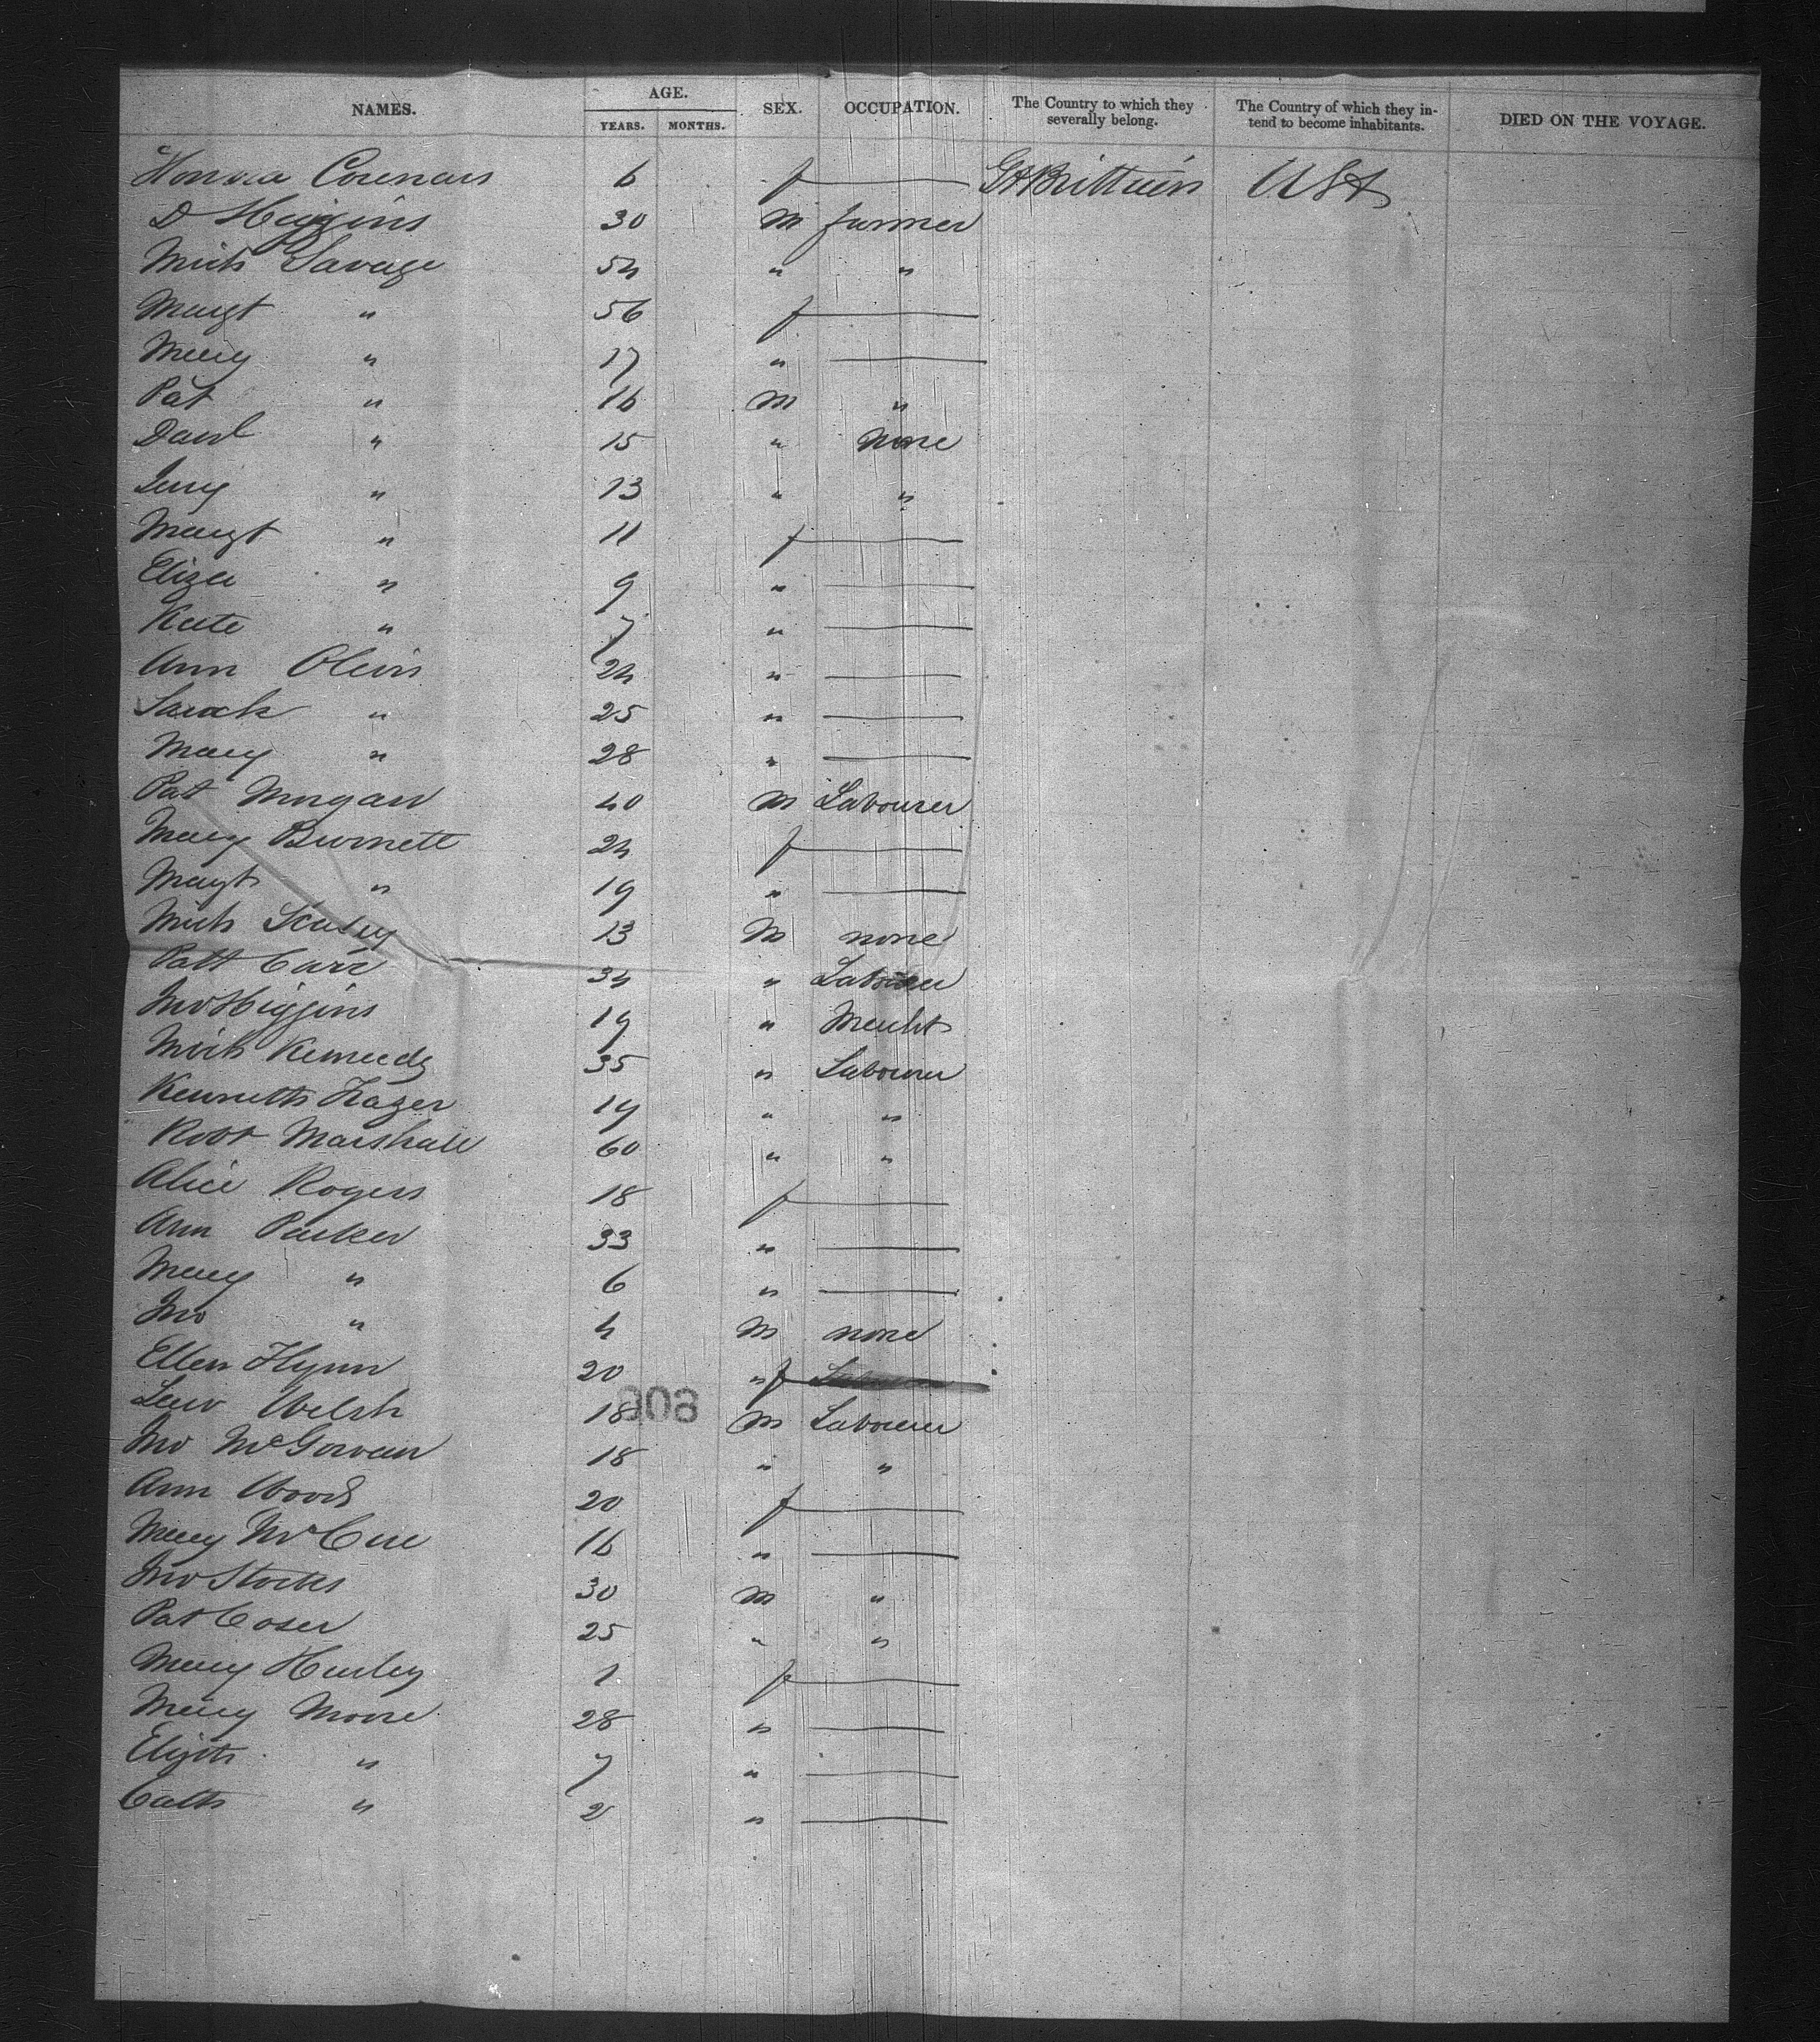 NAMES. AGE. SEX. OCCUPATION. The Country to which they severally belong. The Country of which they intend to become inhabitants. DIED ON THE VOYAGE.
YEARS. MONTHS.
Honora 6 f GtBrittain USA
D Higgins 30 M farmer
Mich Savage 54 " "
Margt " 56 f
Mary " 17 "
Pat " 16 M "
Danl " 15 " None
Jerry " 13 " "
Margt " 11 f
Eliza " 9 "
Kate " 7 "
Ann Olivis 24 "
Sarah " 25 "
Mary " 28 "
Pat Morgan 40 M Labourer
Mary Burnett 24 f
Margt " 19 "
Mich 13 M none
Patt Carr 34 " Labourer
Jno Higgins 19 " Mercht
Mich Kennedy 35 " Labourer
Kenneth Frazer 19 " "
Robt Marshall 60 " "
Alice Rogers 18 f
Ann Parker 33 "
Mary " 6 "
Jno " 4 M none
Ellen Flynn 20 " f
Welsh 18 M Labourer
Jno McGowan 18 " "
Ann Woods 20 f
Mary McCue 16 "
Jno Stocks 30 M "
Pat Coser 25 " "
Mary Hurley 1 f
Mary Moore 28 "
Elizth " 7 "
Cath " 2 "